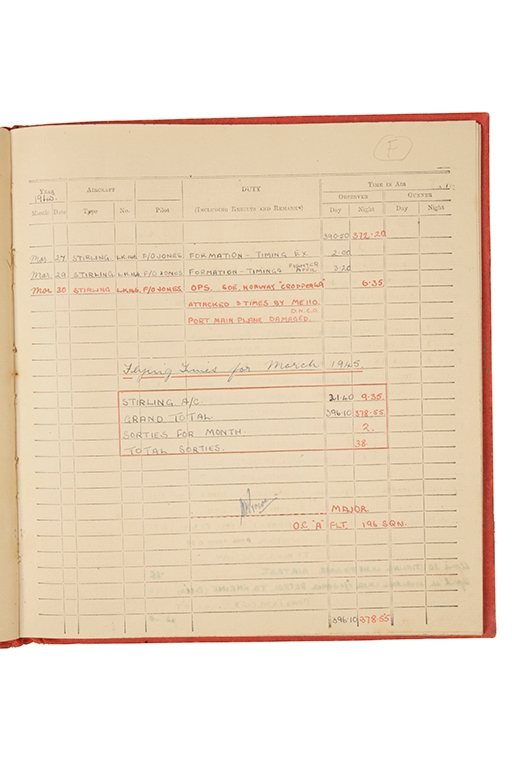 F
YEAR AIRCRAFT DUTY TIME IN AIR
1945. OBSERVER GUNNER
Month Date Type No. Pilot (INCLUDING RESULTS AND REMARKS) Day Night Day Night
390·50 372·20
MAR 27 STIRLING F/O JONES FORMATION - TIMING EX. 2·00
MAR 29 STIRLING F/O JONES FORMATION - TIMINGS FIGHTER AFFIL 3·20
MAR 30 STIRLING F/O JONES OPS. SOE, NORWAY 6·35
ATTACKED 3 TIMES BY ME 110.
D.N.C.O.
PORT MAIN PLANE DAMAGED.
Flying Times for March 1945
STIRLING A/C 21·40 9·35.
GRAND TOTAL 396·10 378·55.
SORTIES FOR MONTH. 2.
TOTAL SORTIES. 38
MAJOR
O.C. "A" FLT. 196 SQN.
396·10 378·55